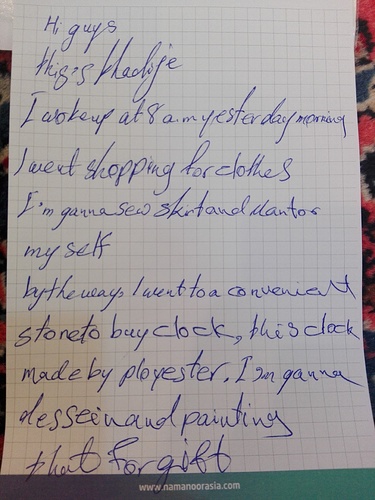 Hi guys
this is Khadije
I wokeup at 8 a.m yesterday morning
I went shopping for clothes
I'm ganna sew skirt and
my self
by the ways I went to a convenient
store to buy clock, this clock
made by ployester. I am ganna
dessein and painting
that for gift
www.namanoorasia.com